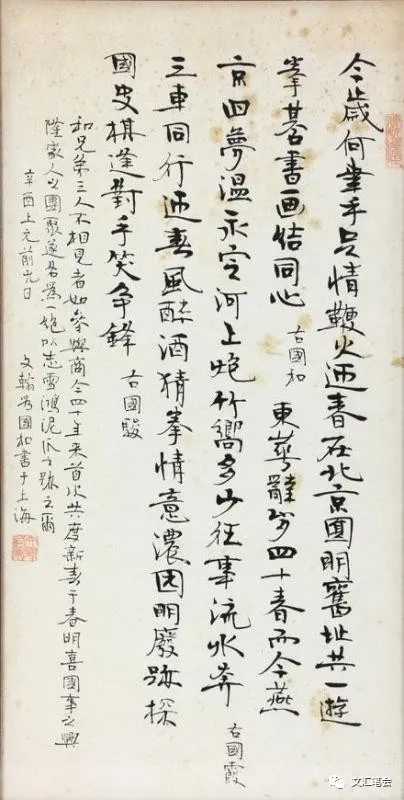 今歲何幸手足情鞭火迎春在北京圓明舊址共一遊
拳棊書画结同心 右國和 東華辭四十春而今燕
京旧夢温永定河上炮竹嚮多少往事流水奔 右國霞
三車同行迎春風醉酒猜拳情意濃园明廢跡探
國史棋逢對手笑争鋒 右國駿
和兄弟三人不相見者如參與商今四十年来首次共度新春于春明喜國事之興
隆家人之團聚遂各為一绝以志雪鴻泥爪之跡云爾
辛酉上元前九日
文翰國和書于上海
文汇笔会